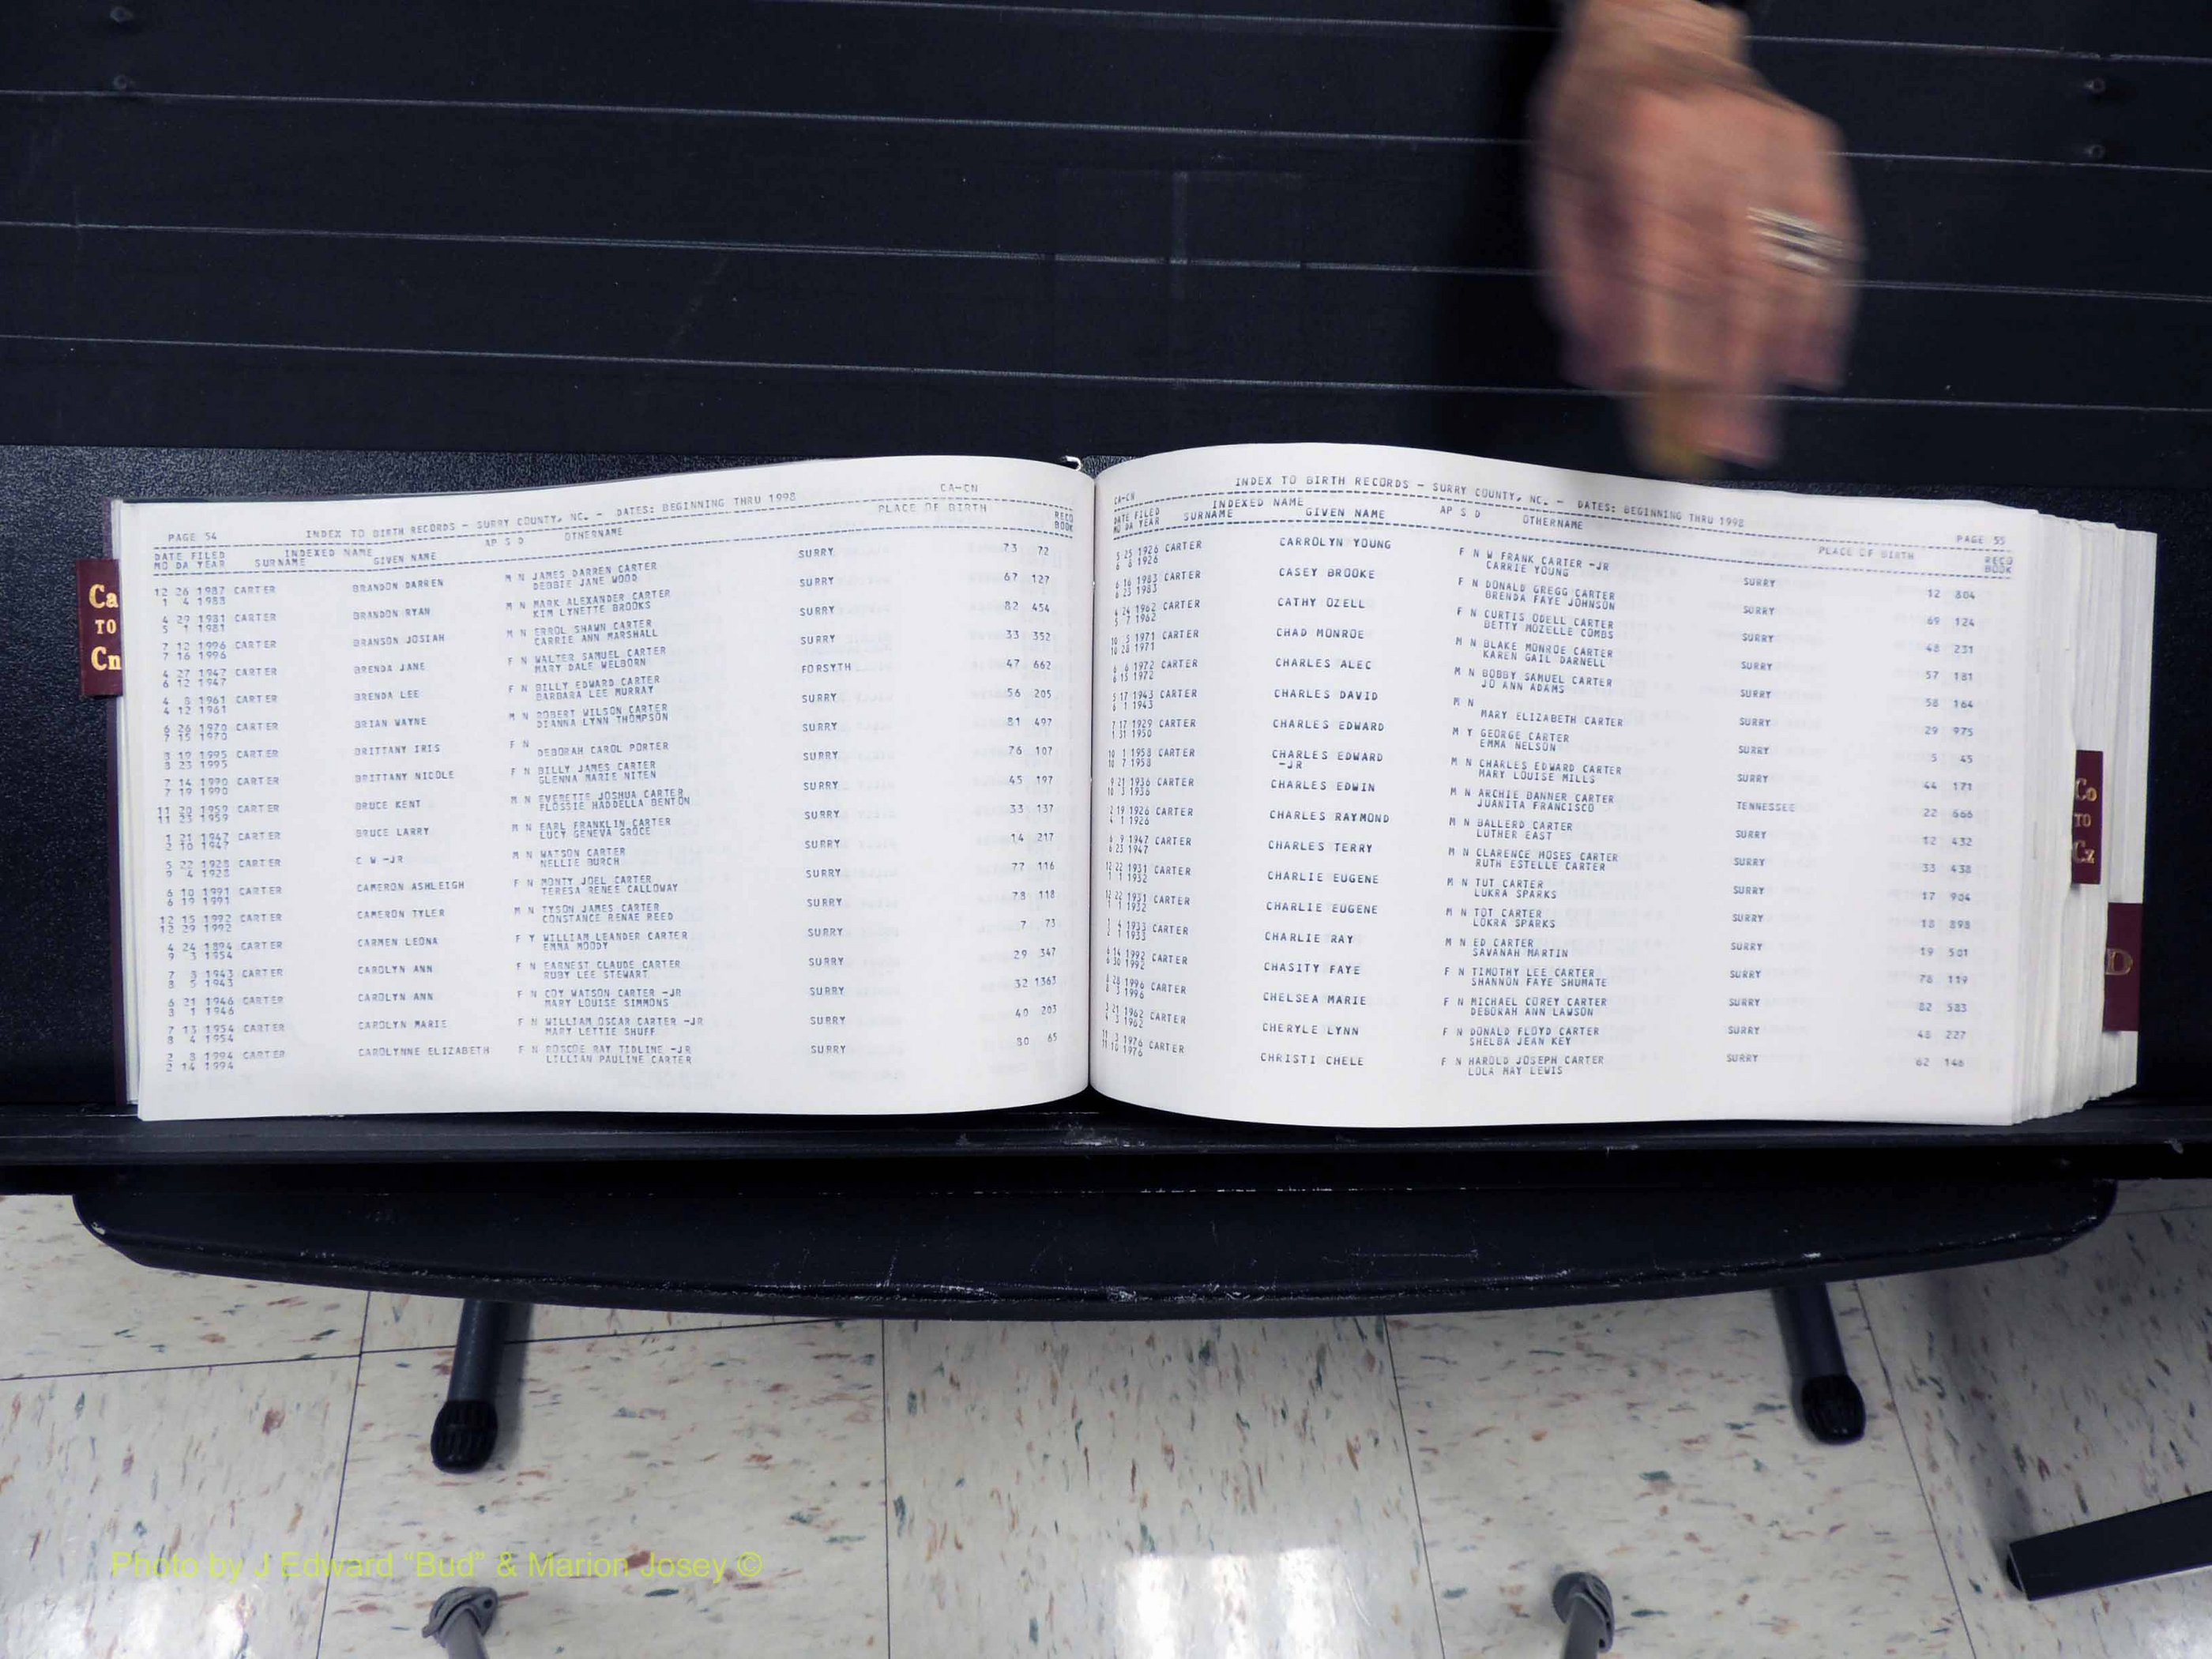 CA-CN
PAGE 54 INDEX TO BIRTH RECORDS - SURRY COUNTY, NC. - DATES: BEGINNING THRU 1998
DATE FILED INDEXED NAME AP S D OTHERNAME PLACE OF BIRTH RECO
MO DA YEAR SURNAME GIVEN NAME BOOK
12 26 1987 CARTER BRANDON DARREN M N JAMES DARREN CARTER SURRY 73 72
1 4 1988 DEBBIE JANE WOOD
4 29 1981 CARTER BRANDON RYAN M N MARK ALEXANDER CARTER SURRY 67 127
5 1 1981 KIM LYNETTE BROOKS
7 12 1996 CARTER BRANSON JOSIAH M N ERROL SHAWN CARTER SURRY 82 454
7 16 1996 CARRIE ANN MARSHALL
4 27 1947 CARTER BRENDA JANE F N WALTER SAMUEL CARTER SURRY 33 352
6 12 1947 MARY DALE WELBORN
4 8 1961 CARTER BRENDA LEE F N BILLY EDWARD CARTER FORSYTH 47 662
4 12 1961 BARBARA LEE MURRAY
6 26 1970 CARTER BRIAN WAYNE M N ROBERT WILSON CARTER SURRY 56 205
7 15 1970 DIANNA LYNN THOMPSON
8 19 1995 CARTER BRITTANY IRIS F N SURRY 81 497
8 23 1995 DEBORAH CAROL PORTER
7 14 1990 CARTER BRITTANY NICOLE F N BILLY JAMES CARTER SURRY 76 107
7 19 1990 GLENNA MARIE NITEN
11 20 1959 CARTER BRUCE KENT M N EVERETTE JOSHUA CARTER SURRY 45 197
11 23 1959 FLOSSIE HADDELLA BENTON
1 21 1947 CARTER BRUCE LARRY M N EARL FRANKLIN CARTER SURRY 33 137
2 10 1947 LUCY GENEVA GROCE
5 22 1928 CARTER C W -JR M N WATSON CARTER SURRY 14 217
9 4 1928 NELLIE BURCH
6 10 1991 CARTER CAMERON ASHLEIGH F N MONTY JOEL CARTER SURRY 77 116
6 19 1991 TERESA RENEE CALLOWAY
12 15 1992 CARTER CAMERON TYLER M N TYSON JAMES CARTER SURRY 78 118
12 29 1992 CONSTANCE RENAE REED
4 24 1894 CARTER CARMEN LEONA F Y WILLIAM LEANDER CARTER SURRY 7 73
9 3 1954 EMMA MOODY
7 8 1943 CARTER CAROLYN ANN F N EARNEST CLAUDE CARTER SURRY 29 347
8 5 1943 RUBY LEE STEWART
6 21 1946 CARTER CAROLYN ANN F N COY WATSON CARTER -JR SURRY 32 1363
8 1 1946 MARY LOUISE SIMMONS
7 13 1954 CARTER CAROLYN MARIE F N WILLIAM OSCAR CARTER -JR SURRY 40 203
8 4 1954 MARY LETTIE SHUFF
2 8 1994 CARTER CAROLYNNE ELIZABETH F N ROSCOE RAY TIDLINE -JR SURRY 80 65
2 14 1994 LILLIAN PAULINE CARTER
CA-CN INDEX TO BIRTH RECORDS - SURRY COUNTY, NC. - DATES: BEGINNING THRU 1998 PAGE 55
DATE FILED INDEXED NAME AP S D OTHERNAME PLACE OF BIRTH RECO
MO DA YEAR SURNAME GIVEN NAME BOOK
5 25 1926 CARTER CARROLYN YOUNG F N W FRANK CARTER -JR SURRY 12 804
6 8 1926 CARRIE YOUNG
6 16 1983 CARTER CASEY BROOKE F N DONALD GREGG CARTER SURRY 69 124
6 23 1983 BRENDA FAYE JOHNSON
4 24 1962 CARTER CATHY OZELL F N CURTIS ODELL CARTER SURRY 48 231
5 7 1962 BETTY MOZELLE COMBS
10 5 1971 CARTER CHAD MONROE M N BLAKE MONROE CARTER SURRY 57 181
10 28 1971 KAREN GAIL DARNELL
6 6 1972 CARTER CHARLES ALEC M N BOBBY SAMUEL CARTER SURRY 58 164
6 15 1972 JO ANN ADAMS
5 17 1943 CARTER CHARLES DAVID M N SURRY 29 975
6 1 1943 MARY ELIZABETH CARTER
7 17 1929 CARTER CHARLES EDWARD M Y GEORGE CARTER SURRY 5 45
1 31 1950 EMMA NELSON
10 1 1958 CARTER CHARLES EDWARD M N CHARLES EDWARD CARTER SURRY 44 171
10 7 1958 -JR MARY LOUISE MILLS
9 21 1936 CARTER CHARLES EDWIN M N ARCHIE BANNER CARTER TENNESSEE 22 666
10 3 1936 JUANITA FRANCISCO
2 19 1926 CARTER CHARLES RAYMOND M N BALLERD CARTER SURRY 12 432
4 1926 LUTHER EAST
6 9 1947 CARTER CHARLES TERRY M N CLARENCE MOSES CARTER SURRY 33 438
6 23 1947 RUTH ESTELLE CARTER
12 22 1931 CARTER CHARLIE EUGENE M N TUT CARTER SURRY 17 904
1 1 1932 LUKRA SPARKS
12 22 1931 CARTER CHARLIE EUGENE M N TOT CARTER SURRY 18 898
1 1 1932 LOKRA SPARKS
4 1933 CARTER CHARLIE RAY M N ED CARTER SURRY 19 501
1 1933 SAVANAH MARTIN
6 14 1992 CARTER CHASITY FAYE F N TIMOTHY LEE CARTER SURRY 78 119
6 30 1992 SHANNON FAYE SHUMATE
28 1996 CARTER CHELSEA MARIE F N MICHAEL COREY CARTER SURRY 82 583
3 1996 DEBORAH ANN LAWSON
3 21 1962 CARTER CHERYLE LYNN F N DONALD FLOYD CARTER SURRY 48 227
4 3 1962 SHELBA JEAN KEY
11 3 1976 CARTER CHRISTI CHELE F N HAROLD JOSEPH CARTER SURRY 62 146
11 10 1976 LOLA MAY LEWIS
Ca
TO
Cn
Co
TO
Cz
D
Photo by J Edward “Bud” & Marion Josey ©